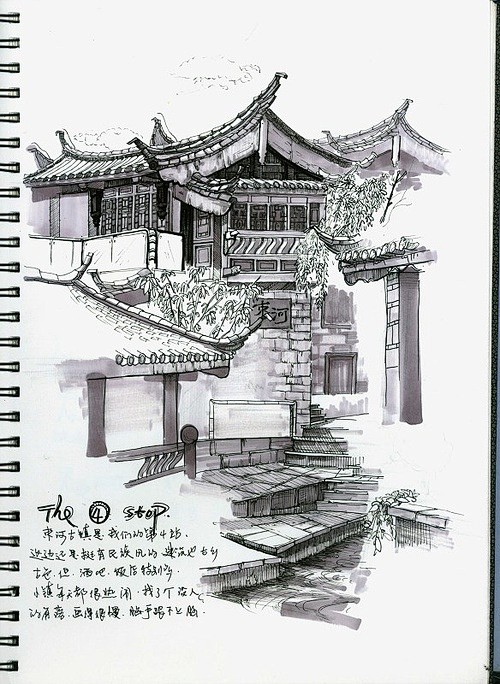 束河
The ④ stop.
束河古镇是我们的第4站.
这边还是挺有民族风的 建筑也古
古老.但.酒吧.饭店特别多
小镇每天都很热闹.找了个没人
的角落.画得很慢.脑子跟不上